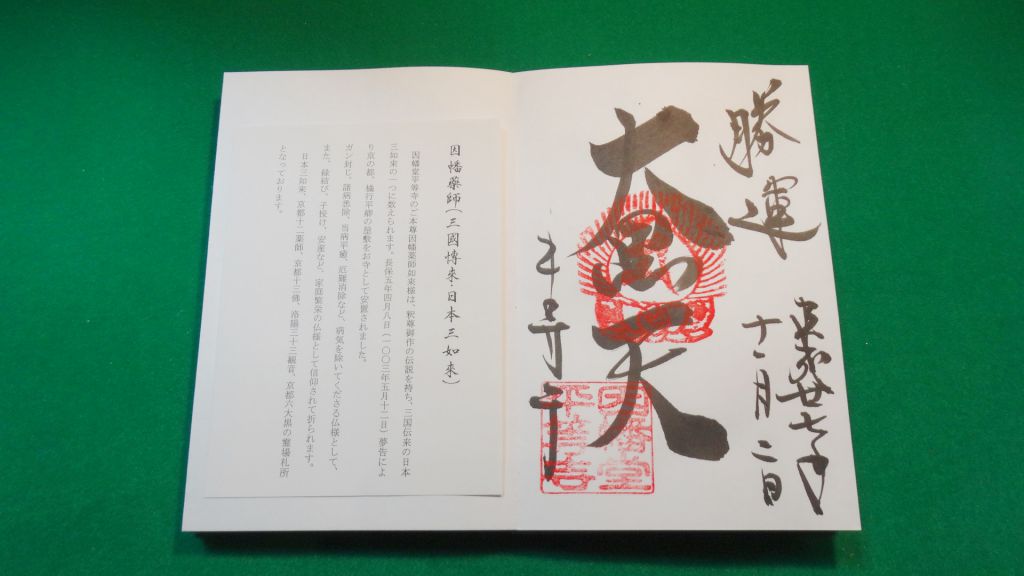 勝運
平成廿七年
十一月二日
大黒天
平等寺
因幡堂
平等寺
因幡藥師(三國傳来・日本三如来)
因幡堂平等寺のご本尊因幡薬師如来様は、釈尊御作の伝説を持ち、三国伝来の日本
三如来の一つに数えられます。長保五年四月八日(一〇〇三年五月十二日)夢告によ
り京の都、橘行平卿の屋敷をお寺として安置されました。
ガン封じ、諸病悉除、当病平癒、厄難消除など、病気を除いてくださる仏様として、
また、縁結び、子授け、安産など、家庭繁栄の仏様として信仰されて折られます。
日本三如来、京都十二薬師、京都十三佛、洛陽三十三観音、京都六大黒の霊場札所
となっております。